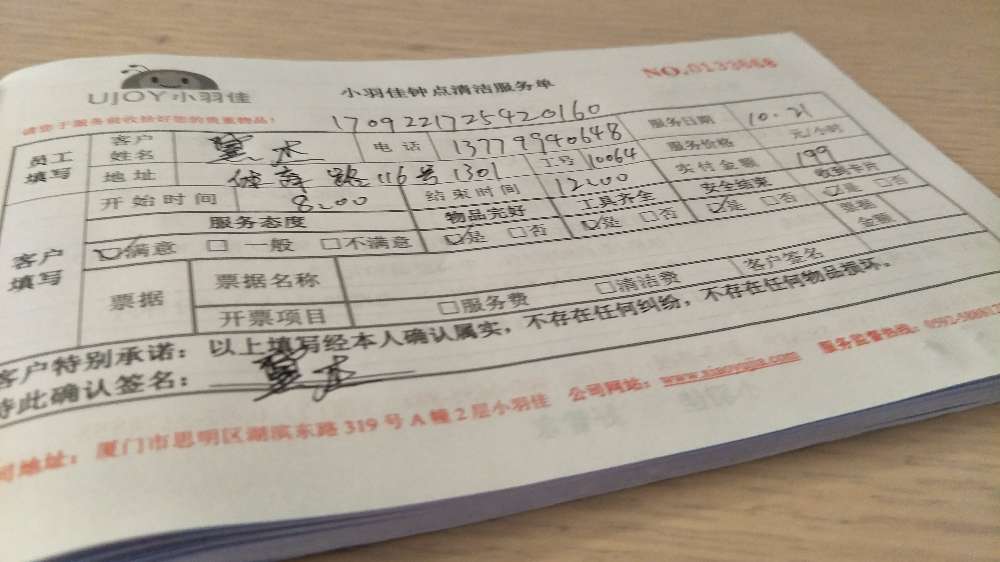 UJOY小羽佳
小羽佳钟点清洁服务单
NO.0133668
请您于服务前收拾好您的贵重物品!
170922172542 0160
员工填写 客户姓名 电话 13779940648 服务日期 10.21
地址 路116号1301 工号 10064 服务价格 元/小时
开始时间 8:00 结束时间 12:00 实付金额 199
客户填写 服务态度 物品完好 工具齐全 安全结束 收到卡片
☑满意 □一般 □不满意 ☑是 □否 ☑是 □否 ☑是 □否 ☑是 □否
票据 票据名称 票据金额
开票项目 □服务费 □清洁费 客户签名
客户特别承诺:以上填写经本人确认属实,不存在任何纠纷,不存在任何物品损坏。
特此确认签名:
司地址:厦门市思明区湖滨东路319号A幢2层小羽佳 公司网站:www.xiaoyujia.com 服务监督热线:0592-